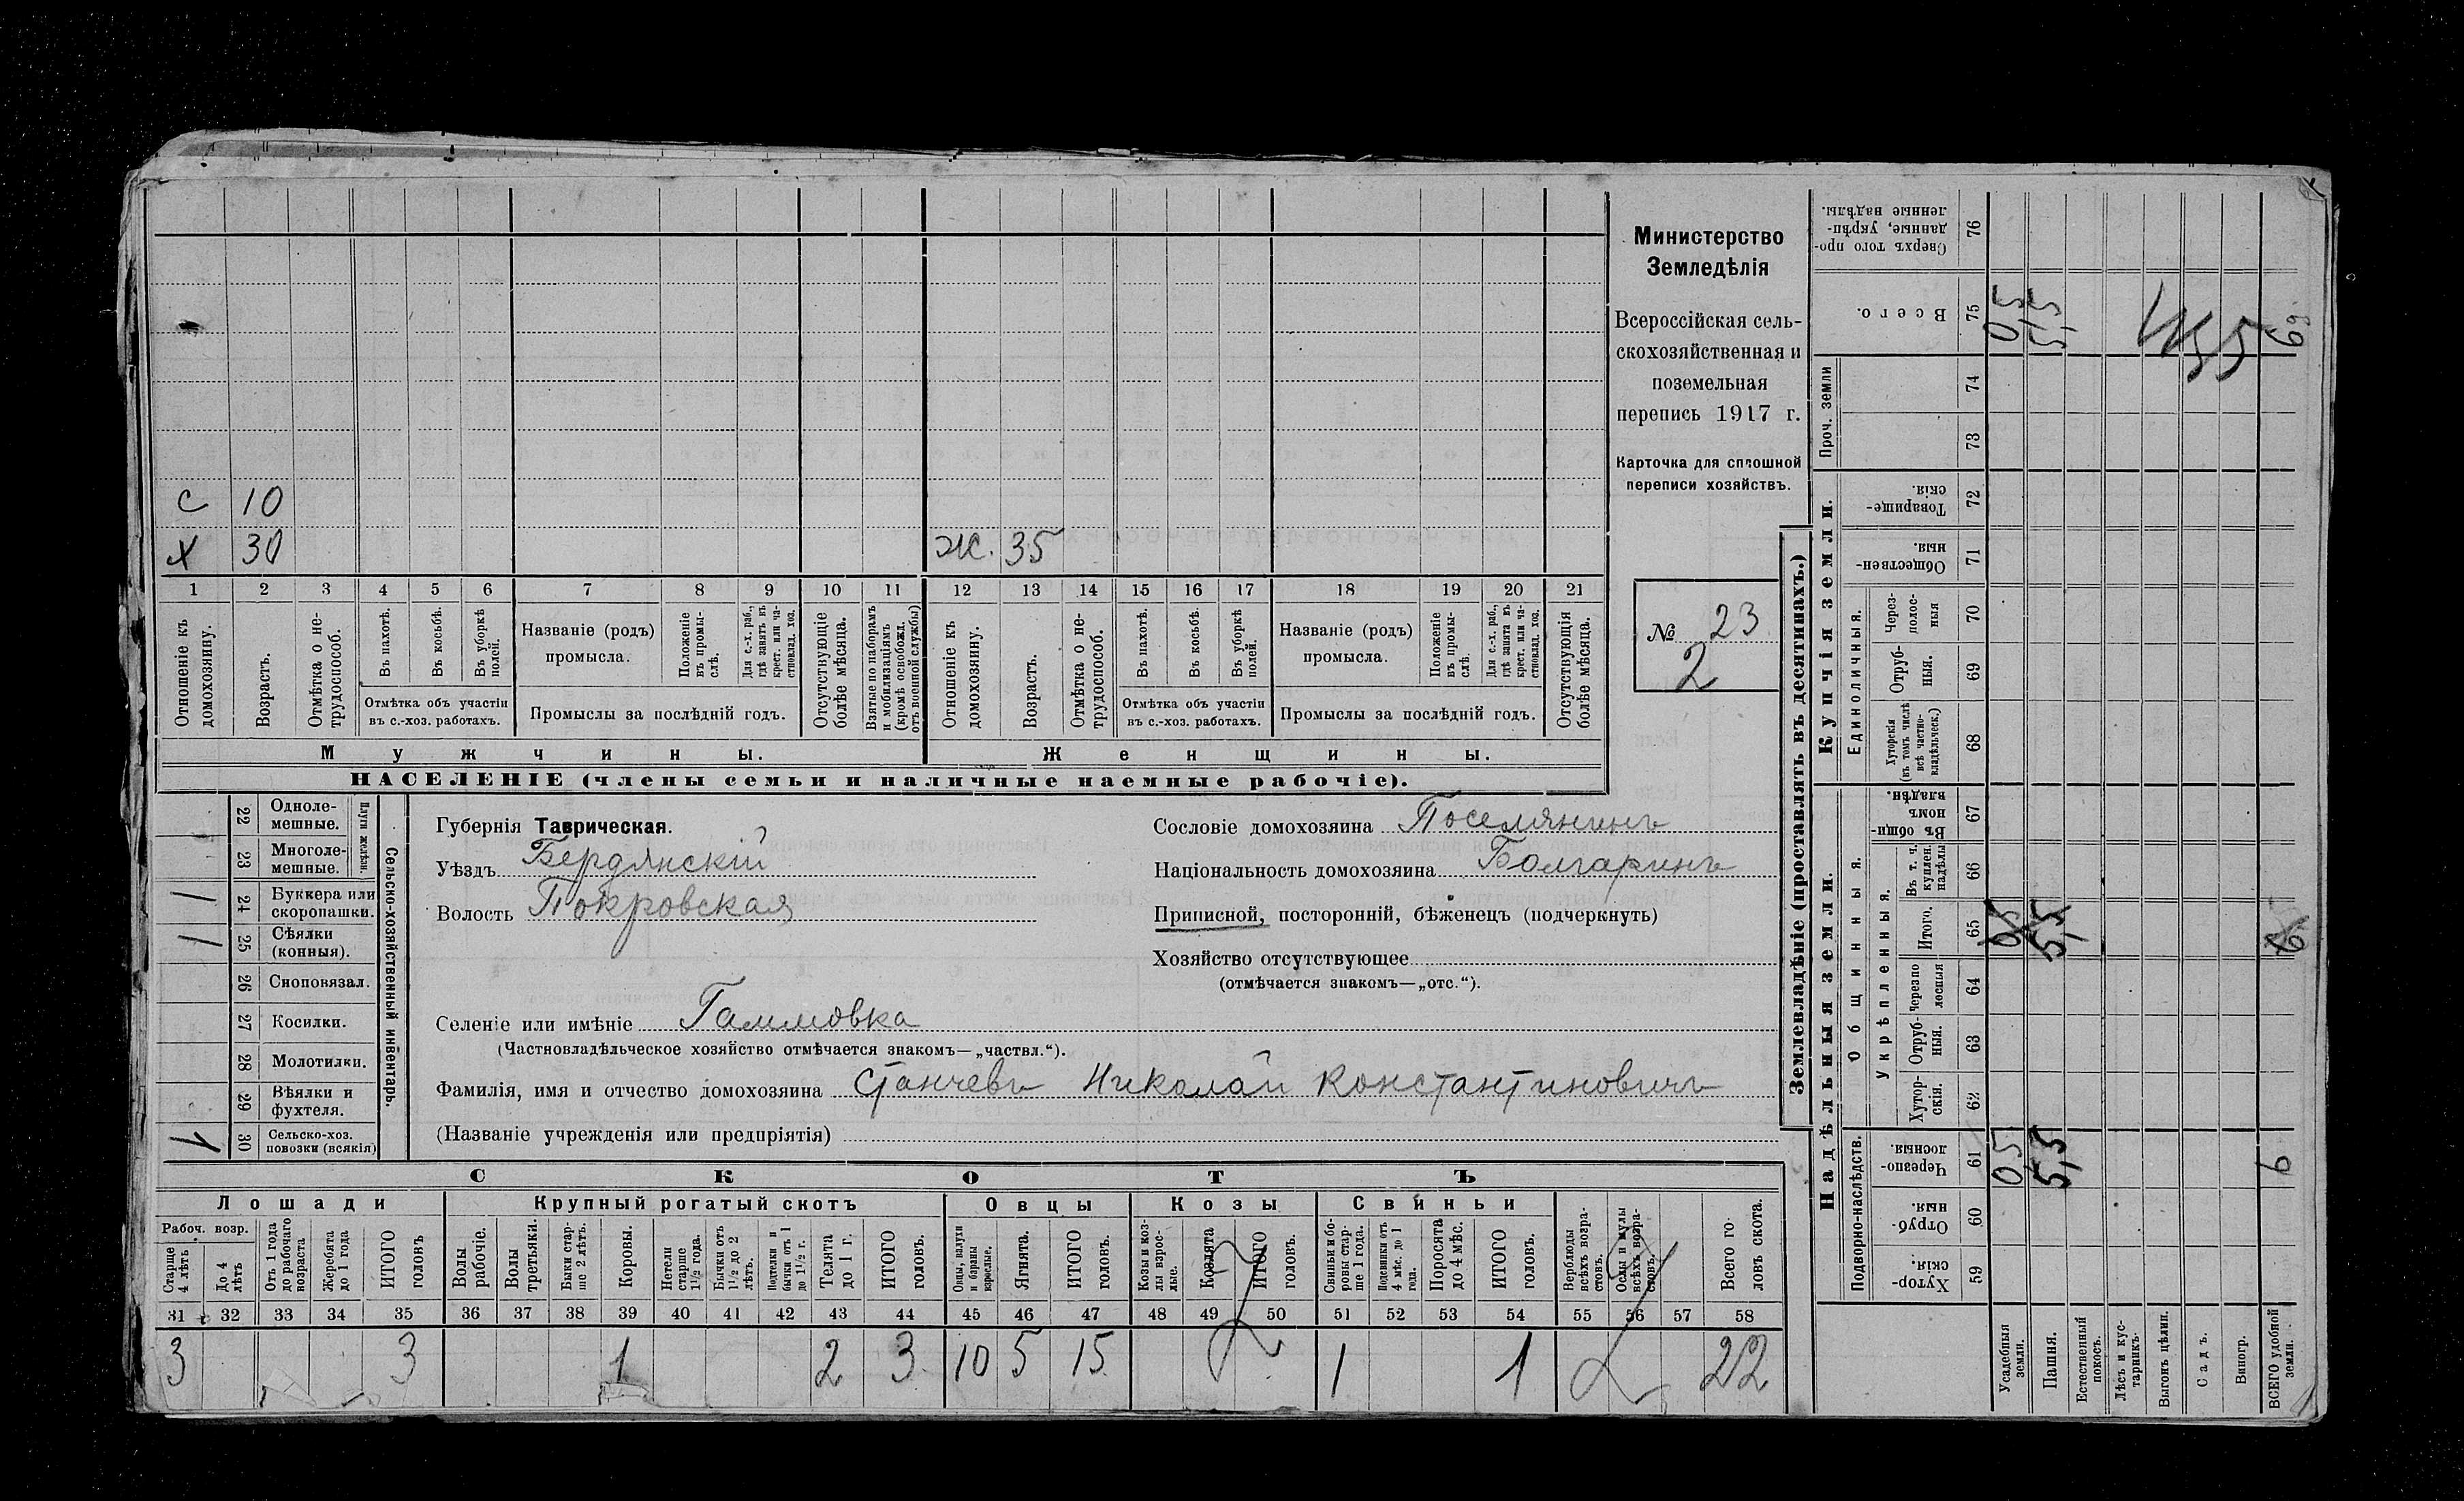 Министерство
Земледѣлія
Всероссійская сель-
скохозяйственная и
поземельная
перепись 1917 г.
Карточка для сплошной
переписи хозяйствъ.
№ 23
2
с 10
х 30
ж. 35
1 2 3 4 5 6 7 8 9 10 11 12 13 14 15 16 17 18 19 20 21
Отношеніе къ домохозяину.
Возрастъ.
Отмѣтка о не-трудоспособ.
Въ пахотѣ.
Въ косьбѣ.
Въ уборкѣ полей.
Отмѣтка объ участіи
въ с.-хоз. работахъ.
Названіе (родъ)
промысла.
Положеніе въ промы-слѣ.
Для с.-х. раб., гдѣ занятъ въ крест. или ча-стновлад. хоз.
Промыслы за послѣдній годъ.
Отсутствующіе болѣе мѣсяца.
Взятые по наборамъ и мобилизаціямъ (кромѣ освобожд. отъ военной службы)
Отношеніе къ домохозяину.
Возрастъ.
Отмѣтка о не-трудоспособ.
Въ пахотѣ.
Въ косьбѣ.
Въ уборкѣ полей.
Отмѣтка объ участіи
въ с.-хоз. работахъ.
Названіе (родъ)
промысла.
Положеніе въ промы-слѣ.
Для с.-х. раб., гдѣ занята въ крест. или ча-стновлад. хоз.
Промыслы за послѣдній годъ.
Отсутствующія болѣе мѣсяца.
Мужчины.
Женщины.
НАСЕЛЕНІЕ (члены семьи и наличные наемные рабочіе).
22 Одноле-мешные.
23 Многоле-мешные.
Плуги желѣзн.
1 24 Буккера или скоропашки.
1 25 Сѣялки (конныя).
26 Сноповязал.
27 Косилки.
28 Молотилки.
29 Вѣялки и фухтеля.
1 30 Сельско-хоз. повозки (всякія)
Сельско-хозяйственный инвентарь.
Губернія Таврическая.
Уѣздъ Бердянскій
Волость Покровская
Сословіе домохозяина Поселянинъ
Національность домохозяина Болгаринъ
Приписной, посторонній, бѣженецъ (подчеркнуть)
Хозяйство отсутствующее
(отмѣчается знакомъ—„отс.“).
Селеніе или имѣніе Гаммовка
(Частновладѣльческое хозяйство отмѣчается знакомъ—„частвл.“).
Фамилія, имя и отчество домохозяина Станчевъ Николай Константиновичъ
(Названіе учрежденія или предпріятія)
СКОТЪ
Лошади
Крупный рогатый скотъ
Овцы
Козы
Свиньи
Рабоч. возр.
Старше 4 лѣтъ
До 4 лѣтъ
Отъ 1 года до рабочаго возраста
Жеребята до 1 года
ИТОГО головъ
Волы рабочіе.
Волы третьяки.
Быки стар-ше 2 лѣтъ.
Коровы.
Нетели старше 1½ года.
Бычки отъ 1½ до 2 лѣтъ.
Подтелки и бычки отъ 1 до 1½ г.
Телята до 1 г.
ИТОГО головъ.
Овцы, валухи и бараны взрослые.
Ягнята.
ИТОГО головъ.
Козы и коз-лы взрос-лые.
Козлята
ИТОГО головъ.
Свиньи и бо-ровы стар-ше 1 года.
Подсвинки отъ 4 мѣс. до 1 года.
Поросята до 4 мѣс.
ИТОГО головъ.
Верблюды всѣхъ возра-стовъ.
Ослы и мулы всѣхъ возра-стовъ.
Всего го-ловъ скота.
31 32 33 34 35 36 37 38 39 40 41 42 43 44 45 46 47 48 49 50 51 52 53 54 55 56 57 58
3 3 1 2 3 10 5 15 1 1 22
Землевладѣніе (проставлять въ десятинахъ.)
Сверхъ того про-данные, укрѣп-ленные надѣлы. 76
Всего. 75 05 5,5 6
Проч. земли
74
73
Купчія земли.
Товарище-скія. 72
Обществен-ныя. 71
Единоличныя.
Через-полос-ныя 70
Отруб-ныя. 69
Хуторскія (въ томъ числѣ всѣ частно-владѣльческ.) 68
Надѣльныя земли.
Общинныя.
Въ общи-номъ владѣн. 67
Укрѣпленныя.
Въ т. ч. куплен. надѣлы 66
Итого. 65 05 5,5 6
Черезпо лосныя 64
Отруб-ныя. 63
Хутор-скія. 62
Подворно-наслѣдств.
Черезпо-лосныя 61 05 5,5 6
Отруб-ныя. 60
Хутор-скія. 59
Усадебныя земли.
Пашня.
Естественный покосъ.
Лѣсъ и кус-тарникъ.
Выгонъ цѣлин.
Садъ.
Виногр.
ВСЕГО удобной земли.